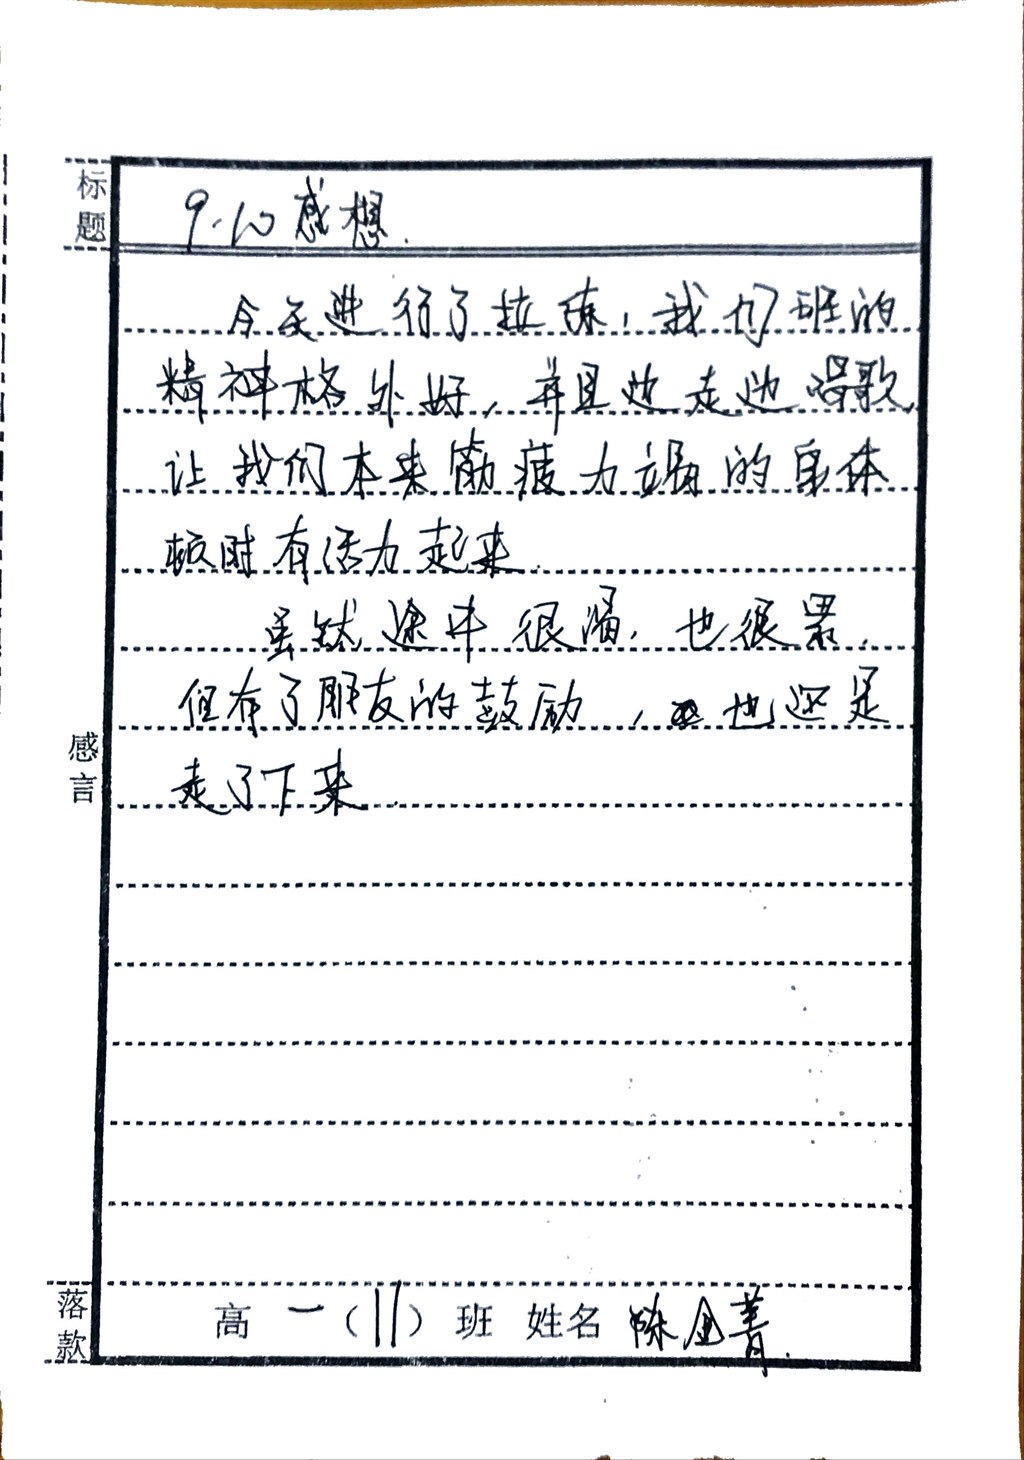 标题
9.10感想.
今天进行了拉练，我们班的
精神格外好，并且边走边唱歌，
让我们本来筋疲力竭的身体
顿时有活力起来.
虽然途中很渴，也很累，
但有了朋友的鼓励，也还是
走了下来.
感言
落款
高一（11）班 姓名 陈金菁.